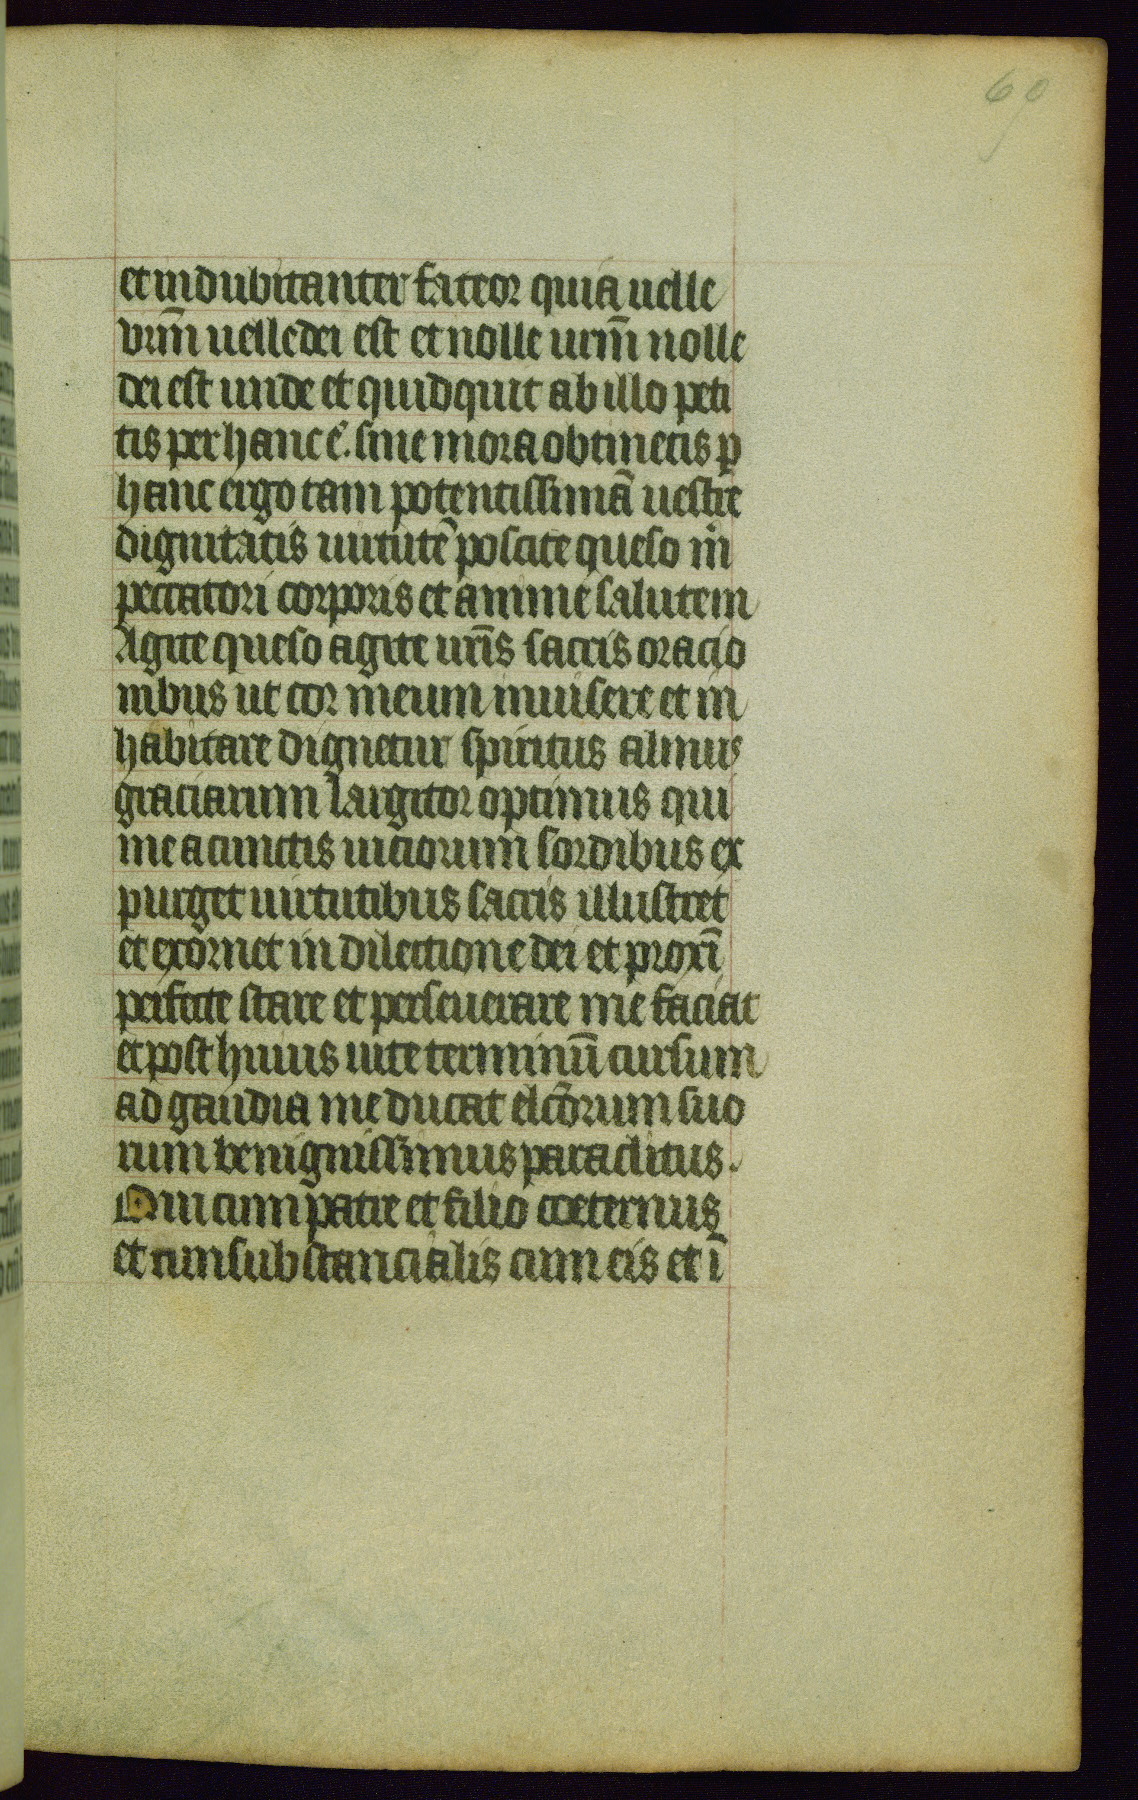 69
et indubitanter fateor quia uelle
vr̄m uelle dei est et nolle ur̄m nolle
dei est unde et quidquit ab illo peti
tis per hanc ē. sine mora obtinetis ꝑ
hanc ergo tam potentissimā uestre
dignitatis uirtutē poscite queso m̄
peccatori corporis et anime salutem
Agite queso agite ur̄is sacris oracio
nibus ut cor meum inuisere et in
habitare dignetur spiritus almus
graciarum largitor optimus qui
me a cunctis uiciorum sordibus ex
purget uirtutibus sacris illustret
et exornet in dilectione dei et proxī
perfecte stare et perseuerare me faciat
et post huius uite terminū cursum
ad gaudia me ducat elc̄orum suo
rum benignissimus paraclitus.
Qui cum patre et filio coeternus
et cunsubstancialis cum eis et ī